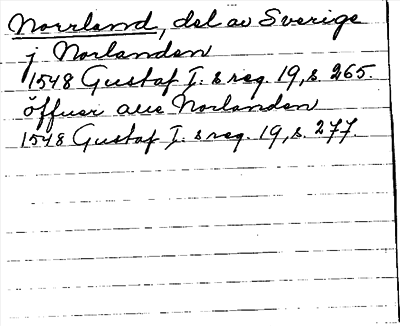 Norrland, del av Sverige
j Norlanden
1548 Gustaf I:s reg. 19, s. 265.
öffuer alle Norlanden
1548 Gustaf I:s reg. 19, s. 277.